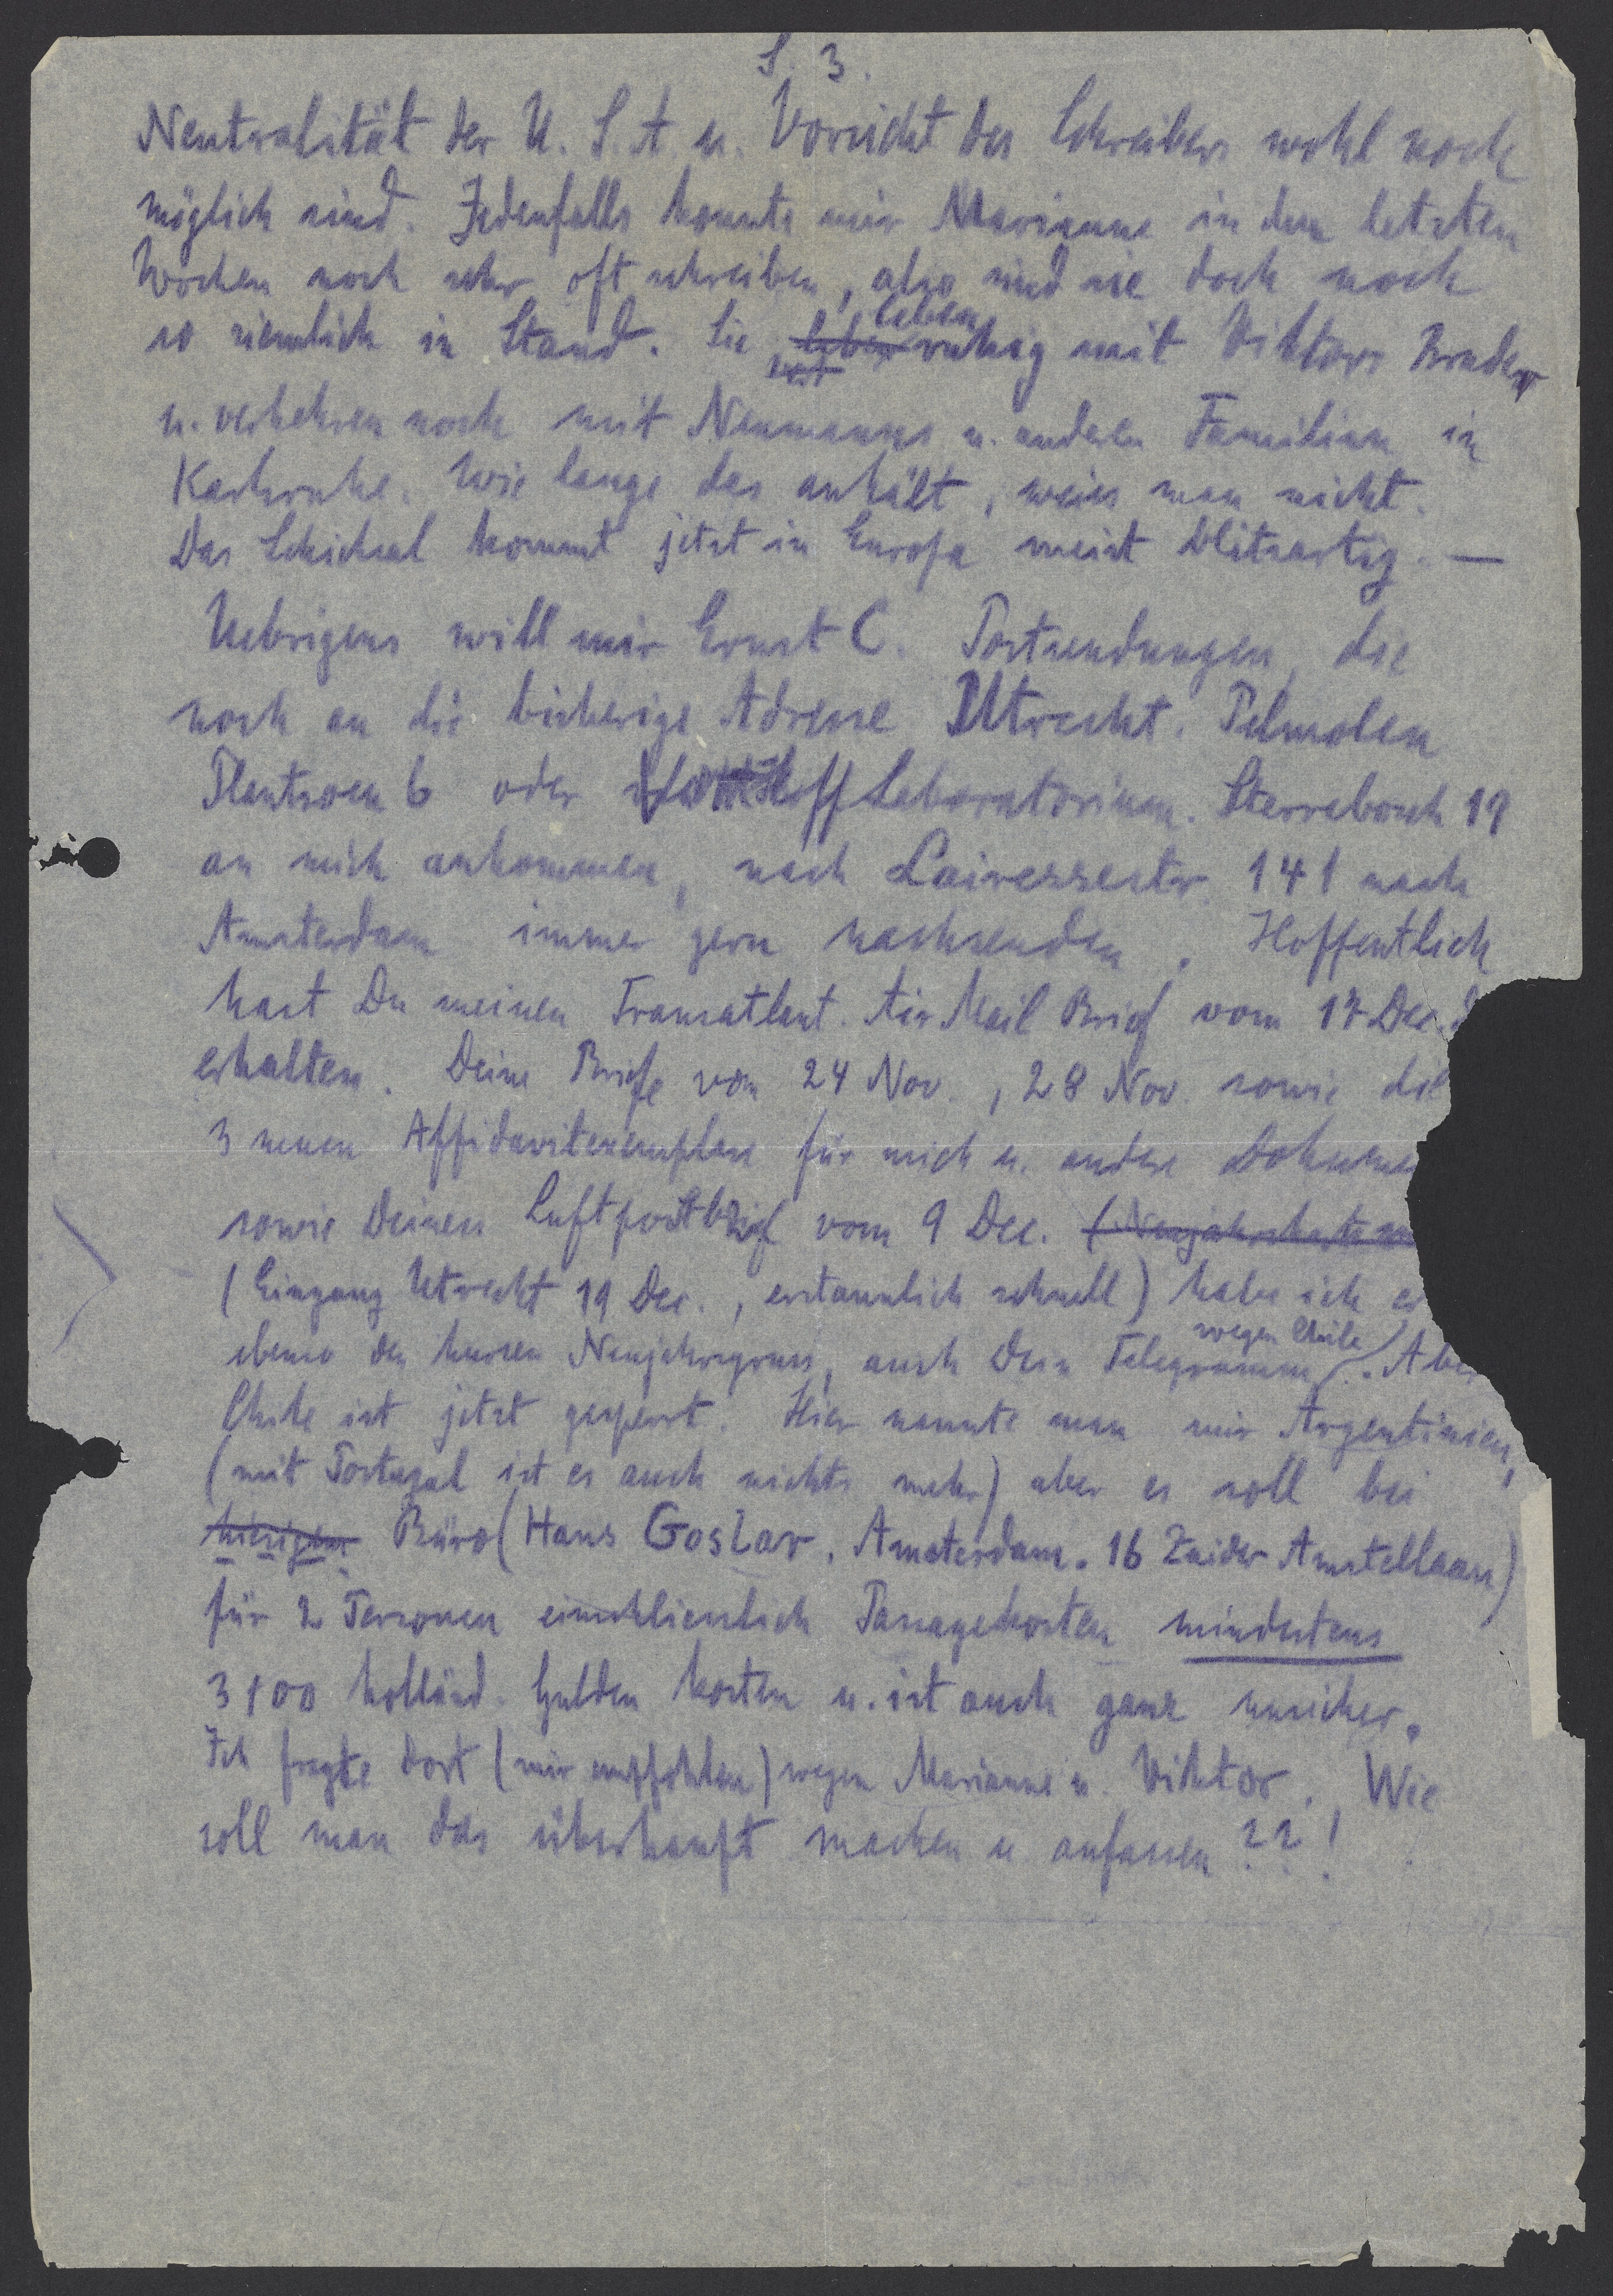 S. 3.
Neutralität der U. S. A. u. Vorsicht des Schreibers wohl noch
möglich sind. Jedenfalls konnte mir Marianne in den letzten
Wochen noch sehr oft schreiben, also sind sie doch noch
so ziemlich in Stand. Sie leben ruhig mit Viktors Bruder
u. verkehren noch mit Neumanns u. anderen Familien in
Karlsruhe. Wie lange das anhält, weiss man nicht.
Das Schicksal kommt jetzt in Europa meist blitzartig. —
Uebrigens will mir Ernst C. Postsendungen, die
noch an die bisherige Adresse Utrecht. Pelmolen
Plantsoen 6 oder Laboratorium. Sterrebosch 19
an mich ankommen, nach Lairessestr. 141 nach
Amsterdam immer gern nachsenden. Hoffentlich
hast Du meinen Transatlant. Air Mail Brief vom 17 Dec
erhalten. Deine Briefe von 24 Nov., 28 Nov. sowie die
3 neuen Affidavitexemplare für mich u. andere Dokume
sowie Deinen Luftpostbrief vom 9 Dec. (Neujahrskarte
(Eingang Utrecht 19 Dec., erstaunlich schnell) habe ich er
ebenso den kurzen Neujahrsgruss, auch Dein Telegramm wegen Chile. Aber
Chile ist jetzt gesperrt. Hier nannte man mir Argentinien,
(mit Portugal ist es auch nichts mehr) aber es soll bei
hiesigem Büro (Hans Goslar. Amsterdam. 16 Zuider Amstellaan)
für 2 Personen einschliesslich Passagekosten mindestens
3100 holländ. Gulden kosten u. ist auch ganz unsicher.
Ich fragte dort (mir empfohlen) wegen Marianne u. Viktor. Wie
soll man das überhaupt machen u. anfassen ??!